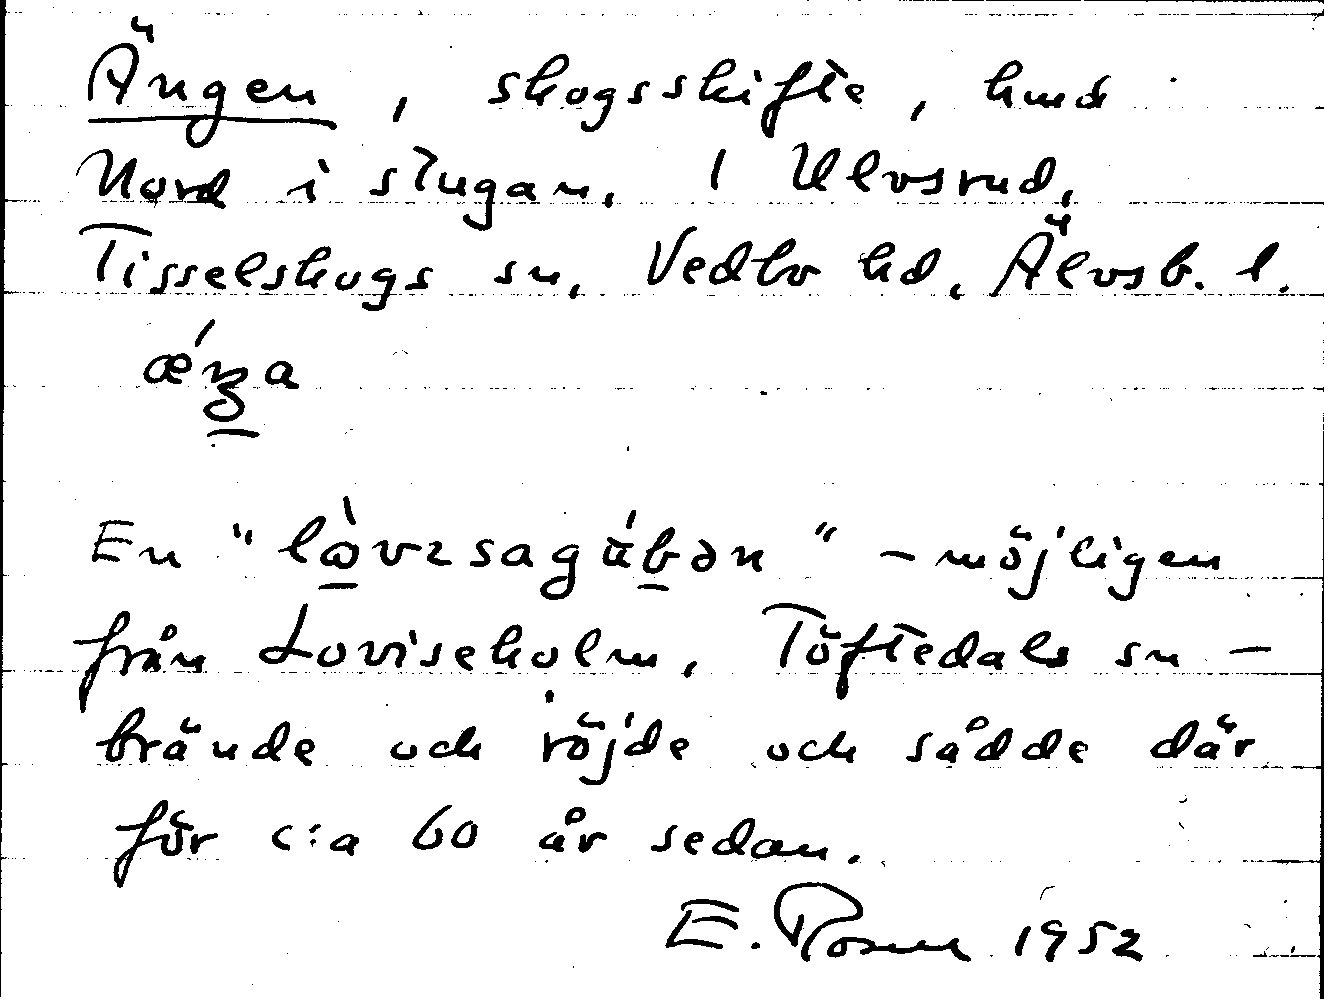 Ängen, skogsskifte, hmd
Nord i stugan, 1 Ulvsrud,
Tisselskogs sn, Vedbo hd, Älvsb. l.
En " – möjligen
från Loviseholm, Töftedals sn –
brände och röjde och sådde där
för c:a 60 år sedan.
E. Rosell 1952